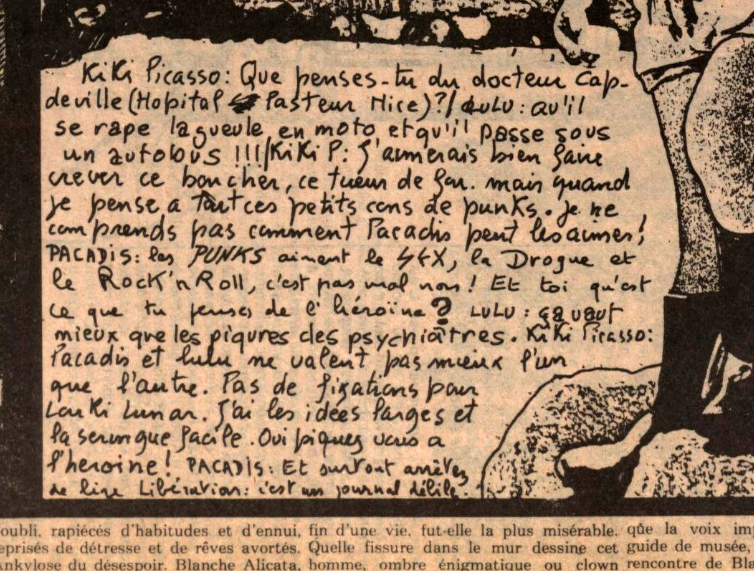 Kiki Picasso: Que penses-tu du docteur Cap-
deville (Hopital Pasteur Nice)?/ LULU: qu'il
se rape la gueule en moto et qu'il passe sous
un autobus !!!/KiKi P: J'aimerais bien faire
crever ce boucher, ce tueur de fou. mais quand
je pense a tout ces petits cons de punks. Je ne
comprends pas comment Pacadis peut les aimer!
PACADIS: les PUNKS aiment le SEX, la Drogue et
le Rock'n Roll, c'est pas mal non! Et toi qu'est
ce que tu penses de l'héroïne? LULU: ça vaut
mieux que les piqures des psychiâtres. KiKi Picasso:
Pacadis et lulu ne valent pas mieux l'un
que l'autre. Pas de fixations pour
LouKi Lunar. J'ai les idées larges et
la seringue facile. Oui piquez vous a
l'heroine! PACADIS: Et surtout arrêtez
de lire Libération: c'est un journal débile.
oubli, rapiécés d'habitudes et d'ennui,
eprisés de détresse et de rêves avortés.
Ankylose du désespoir. Blanche Alicata,
fin d'une vie, fut-elle la plus misérable.
Quelle fissure dans le mur dessine cet
homme, ombre énigmatique ou clown
que la voix im
guide de musée,
rencontre de Bl